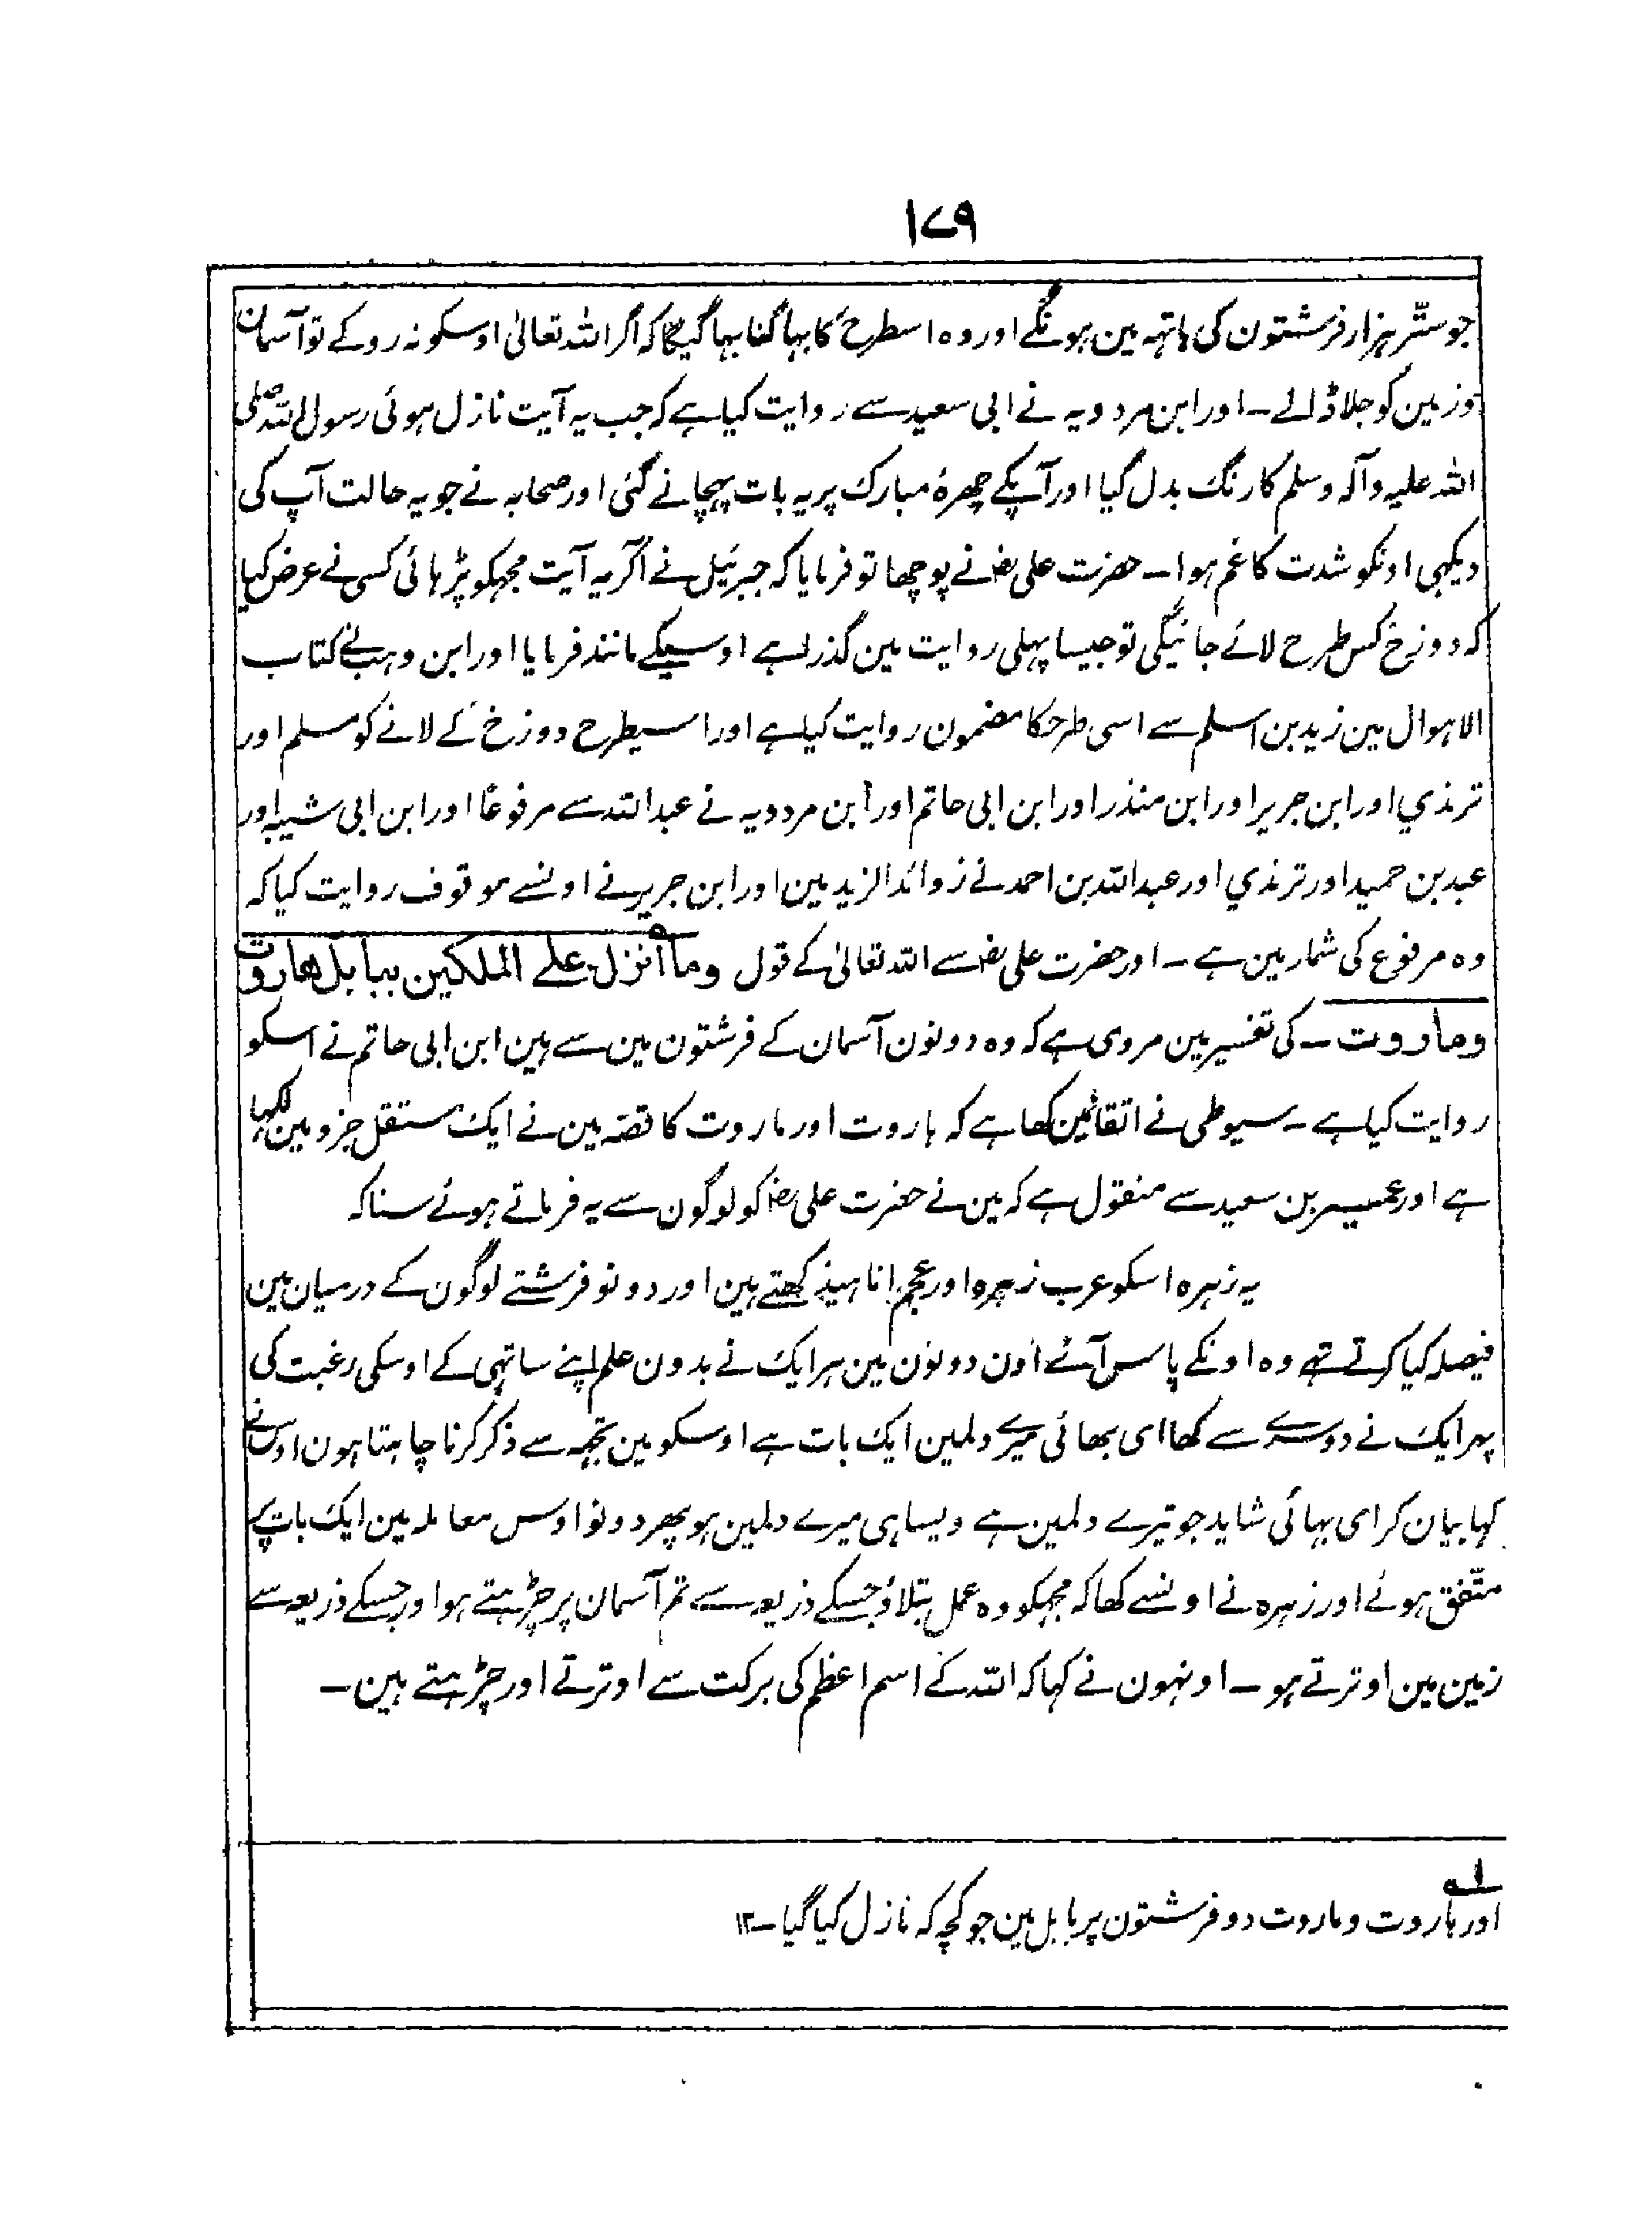 ۱۷۹
جو ستّر ہزار فرشتون کی ہاتہہ مین ہونگے اور وہ اسطرح کا بہاگنا بہاگیگا کہ اگر اللہ تعالیٰ اوسکو نہ روکے تو آسمان
وزمین کو جلا ڈالے ۔ اور ابن مردویہ نے ابی سعید سے روایت کیا ہے کہ جب یہ آیت نازل ہوئی رسول اللہ صلی
اللہ علیہ وآلہ وسلم کا رنگ بدل گیا اور آپکے چہرۂ مبارک پر یہ بات پہچانے گئی اور صحابہ نے جو یہ حالت آپ کی
دیکہی اونکو شدت کا غم ہوا ۔ حضرت علی رضؓ نے پوچھا تو فرمایا کہ جبرئیل نے اگر یہ آیت مجہکو پڑہائی کسی نے عرض کیا
کہ دوزخ کس طرح لائے جائیگی تو جیسا پہلی روایت مین گذرا ہے اوسیکے مانند فرمایا اور ابن وہب نے کتاب
الاہوال مین زید بن اسلم سے اسی طرحکا مضمون روایت کیا ہے اور اسیطرح دوزخ کے لانے کو مسلم اور
ترمذي اور ابن جریر اور ابن منذر اور ابن ابی حاتم اور ابن مردویہ نے عبد اللہ سے مرفوعًا اور ابن ابی شیبہ اور
عبد بن حمید اور ترمذي اور عبد اللہ بن احمد نے زوائد الزید مین اور ابن جریر نے اونسے موقوف روایت کیا کہ
وہ مرفوع کی شمار مین ہے ۔ اور حضرت علی رضؓ سے اللہ تعالیٰ کے قول وما أنزل علے الملكين ببابل هاروت
وماروت ۔ کی تفسیر مین مروی ہے کہ وہ دونون آسمان کے فرشتون مین سے ہین ابن ابی حاتم نے اسکو
روایت کیا ہے ۔ سیوطی نے اتقانمین لکھا ہے کہ ہاروت اور ماروت کا قصّہ مین نے ایک مستقل جزو مین لکہا
ہے اور عمیر بن سعید سے منقول ہے کہ مین نے حضرت علی رضؓ کو لوگون سے یہ فرماتے ہوئے سنا کہ
یہ زہرہ اسکو عرب زہرہ اور عجم اناہیذ کھتے ہین اور دونو فرشتے لوگون کے درمیان مین
فیصلہ کیا کرتے تہے وہ اونکے پاس آئے اون دونون مین ہر ایک نے بدون علم اپنے ساتہی کے اوسکی رغبت کی
پہر ایک نے دوسرے سے کھا ای بھائی میرے دلمین ایک بات ہے اوسکو مین تجہہ سے ذکر کرنا چاہتا ہون اوس نے
کہا بیان کر ای بہائی شاید جو تیرے دلمین ہے ویسا ہی میرے دلمین ہو پھر دونو اوس معاملہ مین ایک بات پر
متّفق ہوئے اور زہرہ نے اونسے کھا کہ مجہکو وہ عمل بتلاؤ جسکے ذریعہ سے تم آسمان پر چڑہتے ہو اور جسکے ذریعہ سے
زمین مین اوترتے ہو ۔ اونہون نے کہا کہ اللہ کے اسم اعظم کی برکت سے اوترتے اور چڑہتے ہین ۔
لہ
اور ہاروت و ماروت دو فرشتون پر بابل مین جو کچہ کہ نازل کیا گیا ۔ ۱۲